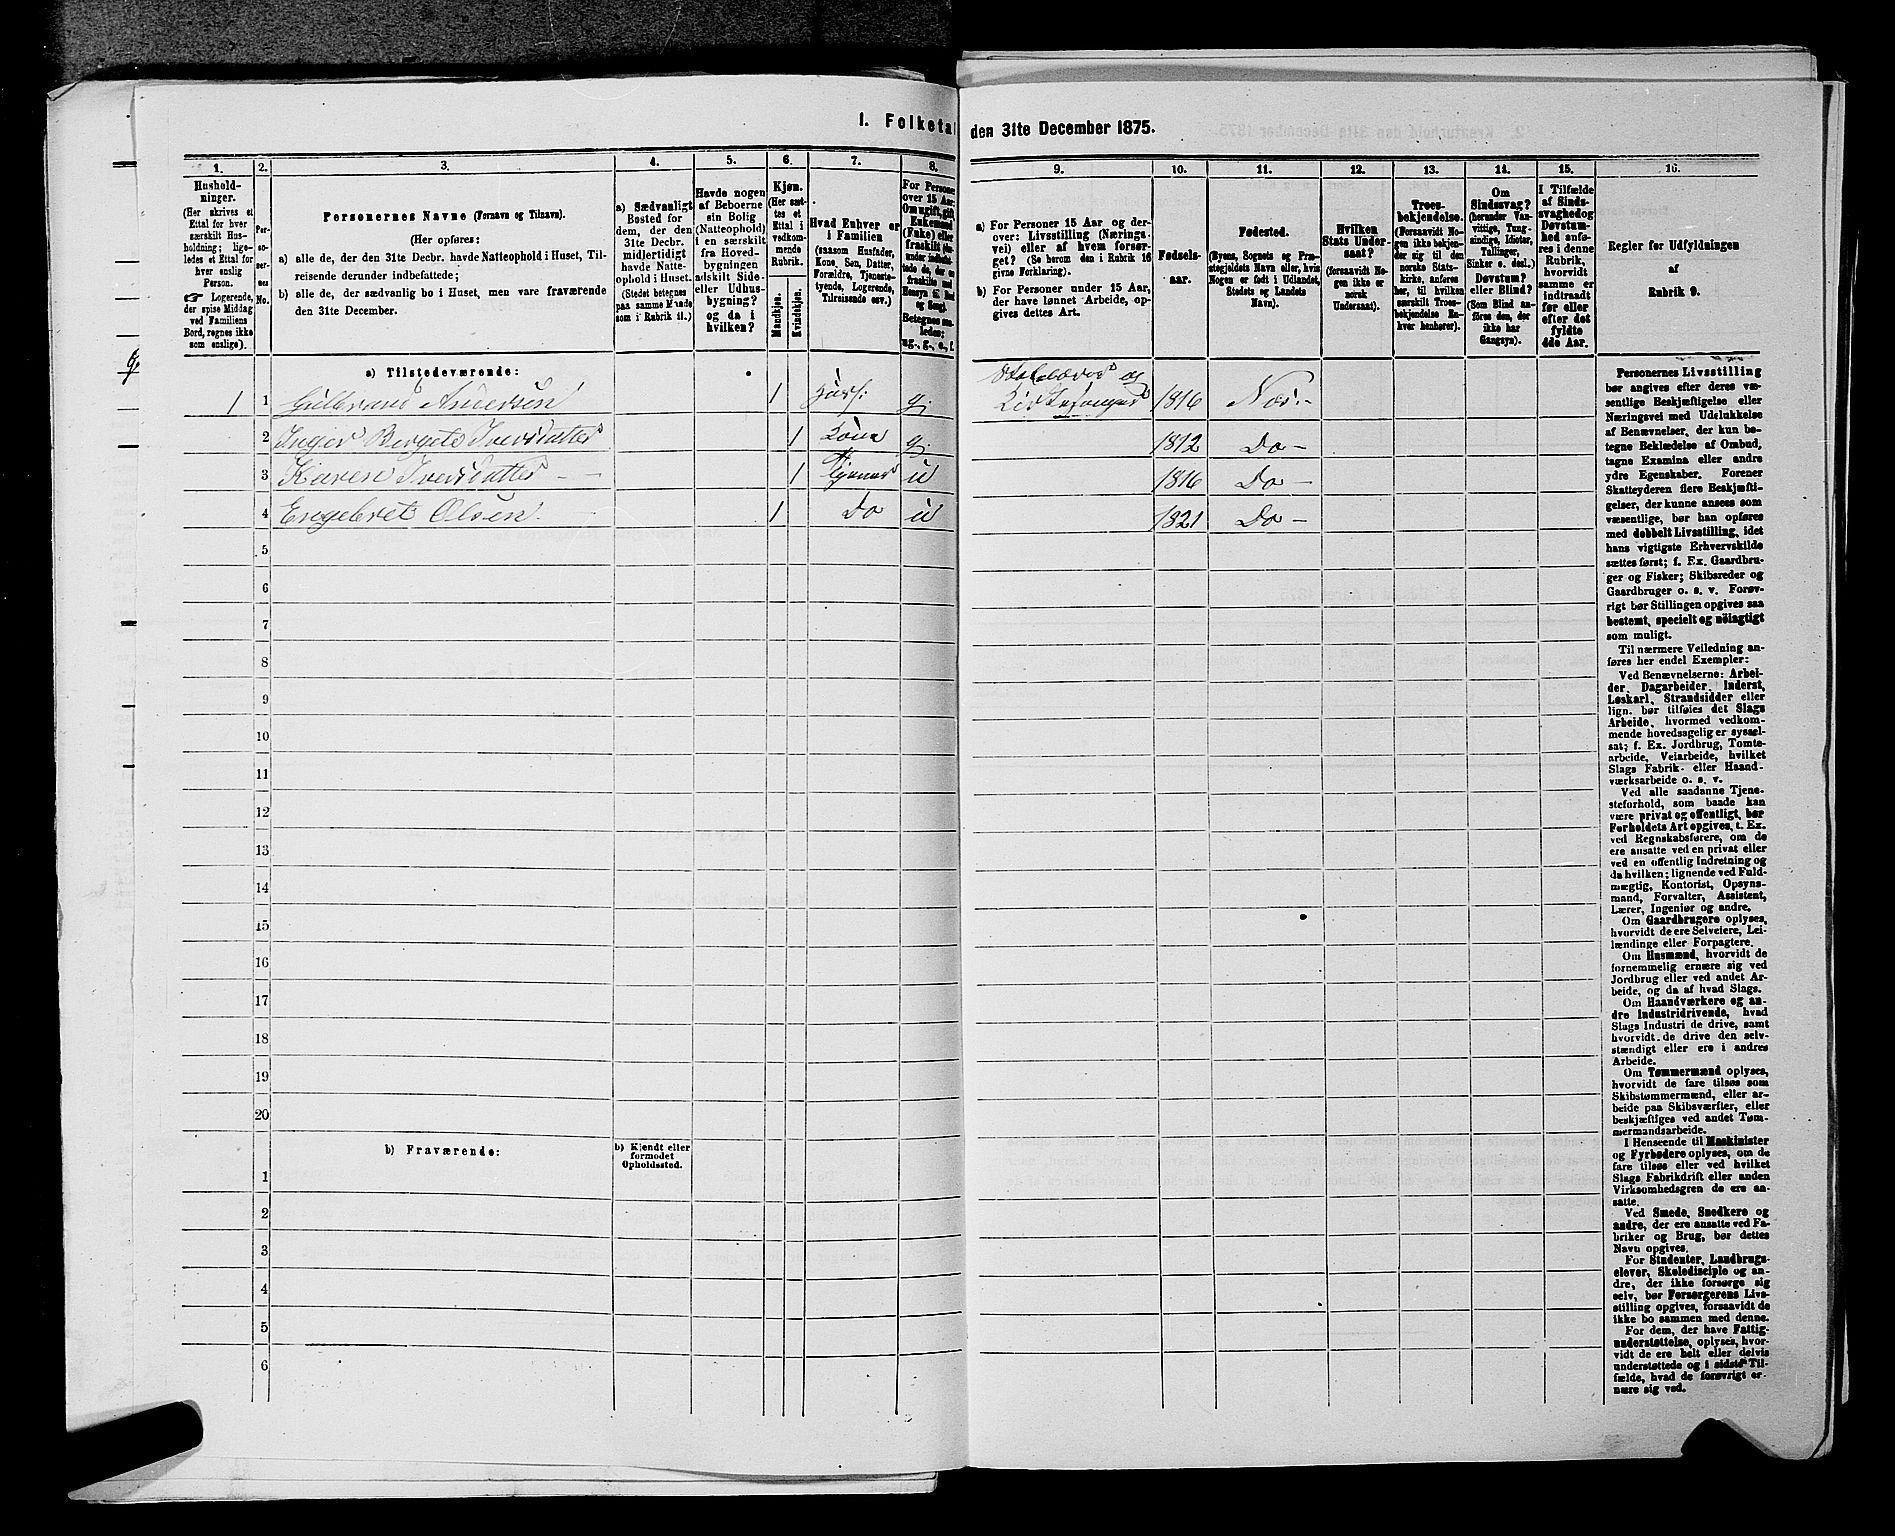 1. Folketal
den 31te December 1875.
1. 2. 3. 4. 5. 6. 7. 8. 9. 10. 11. 12. 13. 14. 15. 16.
Hushold-
ninger.
(Her skrives et
Ettal for hver
særskilt Hus-
holdning; lige-
ledes et Ettal for
hver enslig
Person.
☞ Logerende,
der spise Middag
ved Familiens
Bord, regnes ikke
som enslige).
Per-
so-
ner-
nes
No.
Personernes Navne (Fornavn og Tilnavn).
(Her opføres:
a) alle de, der den 31te Decbr. havde Natteophold i Huset, Til-
reisende derunder indbefattede;
b) alle de, der sædvanlig bo i Huset, men vare fraværende
den 31te December.
a) Sædvanligt
Bosted for
dem, der den
31te Decbr.
midlertidigt
havde Natte-
ophold i Huset.
(Stedet betegnes
paa samme Maade
som i Rubrik 11.)
Havde nogen
af Beboerne
sin Bolig
(Natteophold)
i en særskilt
fra Hoved-
bygningen
adskilt Side-
eller Udhus-
bygning?
og da i
hvilken?
Kjøn.
(Her sæt-
tes et
Ettal i
vedkom-
mende
Rubrik.
Mandkjøn.
Kvindekjøn.
Hvad Enhver er
i Familien
(saasom Husfader,
Kone, Søn, Datter,
Forældre, Tjeneste-
tyende, Logerende,
Tilreisende osv.)
For Personer
over 15 Aar:
Om ugift, gift,
Enkemand
(Enke) eller
fraskilt
Betegnes saa-
ledes:
ug., g., e., f.
a) For Personer 15 Aar og der-
over: Livsstilling (Nærings-
vei) eller af hvem forsør-
get? (Se herom den i Rubrik 16
givne Forklaring).
b) For Personer under 15 Aar,
der have lønnet Arbeide, op-
gives dettes Art.
Fødsels-
aar.
Fødested.
(Byens, Sognets og Præ-
stegjeldets Navn eller, hvis
Nogen er født i Udlandet,
Stedets og Landets
Navn).
Hvilken
Stats Under-
saat?
(forsaavidt No-
gen ikke er
norsk
Undersaat).
Troes-
bekjendelse.
(Forsaavidt No-
gen ikke bekjen-
der sig til den
norske Stats-
kirke, anføres
her, til hvilken
særskilt Troes-
bekjendelse En-
hver henhører).
Om
Sindssvag?
(herunder Van-
vittige, Tung-
sindige, Idioter,
Tullinger,
Sinker o. desl.)
Døvstum?
eller Blind?
(Som Blind an-
føres den, der
ikke har
Gangsyn).
I Tilfælde
af Sinds-
svaghed og
Døvstum-
hed anfø-
res i denne
Rubrik,
hvorvidt
samme er
indtraadt
før eller
efter det
fyldte
4de Aar.
Regler for Udfyldningen
af
Rubrik 9.
a) Tilstedeværende:
1 1 Gulbrand Andersen 1 Husf: g. Skolelærer og Kirkesanger 1816 Næs.-
2 Inger Birgete Iversdatter 1 Kone g. 1812 Do -
3 Karen Iversdatter - 1 Tjener u 1816 Do -
4 Engebret Olsen. 1 Do u 1821 Do -
5
6
7
8
9
10
11
12
13
14
15
16
17
18
19
20
b) Fraværende:
b) Kjendt eller
formodet
Opholdssted.
1
2
3
4
5
6
Personernes Livsstilling
bør angives efter deres væ-
sentlige Beskjæftigelse eller
Næringsvei med Udelukkelse
af Benævnelser, der kun be-
tegne Beklædelse af Ombud,
tagne Examina eller andre
ydre Egenskaber. Forener
Skatteyderen flere Beskjæfti-
gelser, der kunne ansees som
væsentlige, bør han opføres
med dobbelt Livsstilling, idet
hans vigtigste Erhvervskilde
sættes først; f. Ex. Gaardbru-
ger og Fisker; Skibsreder og
Gaardbruger o. s. v. Forøv-
rigt bør Stillingen opgives saa
bestemt, specielt og nöiagtigt
som muligt.
Til nærmere Veiledning an-
føres her endel Exempler:
Ved Benævnelserne: Arbei-
der, Dagarbeider, Inderst,
Løskarl, Strandsidder eller
lign. bør tilføies det Slags
Arbeide, hvormed vedkom-
mende hovedsagelig er syssel-
sat; f. Ex. Jordbrug, Tomte-
arbeide, Veiarbeide, hvilket
Slags Fabrik- eller Haand-
værksarbeide o. s. v.
Ved alle saadanne Tjene-
steforhold, som baade kan
være privat og offentligt, bør
Forholdets Art opgives, t. Ex.
ved Regnskabsførere, om de
ere ansatte ved en privat eller
ved en offentlig Indretning og
da hvilken; lignende ved Fuld-
mægtig, Kontorist, Opsyns-
mand, Forvalter, Assistent,
Lærer, Ingeniør og andre.
Om Gaardbrugere oplyses,
hvorvidt de ere Selveiere, Lei-
lændinge eller Forpagtere.
Om Husmænd, hvorvidt de
fornemmelig ernære sig ved
Jordbrug eller ved andet Ar-
beide, og da af hvad Slags.
Om Haandværkere og an-
dre Industridrivende, hvad
Slags Industri de drive, samt
hvorvidt de drive den selv-
stændigt eller ere i andres
Arbeide.
Om Tømmermænd oplyses,
hvorvidt de fare tilsøs som
Skibstømmermænd, eller ar-
beide paa Skibsværfter, eller
beskjæftiges ved andet Tøm-
mermandsarbeide.
I Henseende til Maskinister
og Fyrbødere oplyses, om de
fare tilsøs eller ved hvilket
Slags Fabrikdrift eller anden
Virksomhedsgren de ere an-
satte.
Ved Smede, Snedkere og
andre, der ere ansatte ved Fa-
briker og Brug, bør dettes
Navn opgives.
For Studenter, Landbrugs-
elever, Skoledisciple og an-
dre, der ikke forsørge sig
selv, bør Forsørgerens Livs-
stilling opgives, forsaavidt de
ikke bo sammen med denne.
For dem, der have Fattig-
understøttelse, oplyses, hvor-
vidt de ere helt eller delvis
understøttede og i sidste Til-
fælde, hvad de forøvrigt er-
nære sig ved.